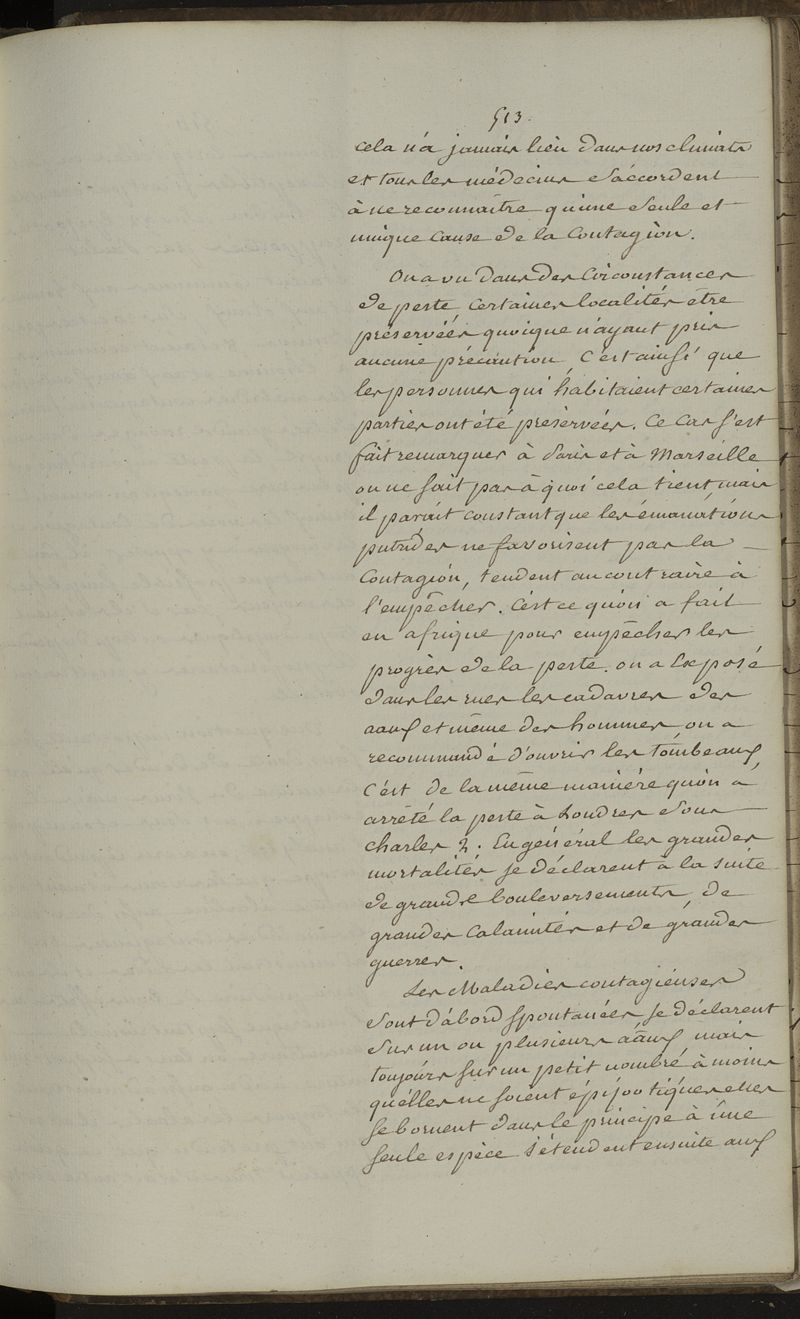 513.
cela n'a jamais lieu dans nos climats
et tous les médecins s'accordent
à ne reconnaitre qu'une seule et
unique cause de la contagion.
On a vu dans des circonstances
de peste, certaines localités être
préservées quoique n'ayant pris
aucune précaution, c'est ainsi que
les personnes qui habitaient certaines
parties ont été préservées. Ce cas s'est
fait remarquer à Paris et à Marseille
on ne sait pas à quoi cela tient mais
il parait constant que les émanations
putrides ne favorisent pas la
contagion, tendent au contraire à
l'empêcher. C'est ce qu'on a fait
en afrique pour empêcher les
progrès de la peste. on a Exposé
dans les rues les cadavres des
aaux et même des hommes, on a
recommandé d'ouvrir les tombeaux,
C'est de la même manière qu'on a
arrêté la peste à Londres sous
charles 2. En général les grandes
mortalités se déclarent à la suite
de grands bouleversements, de
grandes calamités et de grandes
guerres.
Les Maladies contagieuses
sont d'abord spontanées, se déclarent
sur un ou plusieurs aaux, mais
toujours sur un petit nombre à moins
qu'elles ne soient épizootiques elles
se bornent dans le principe à une
seule espèce s'étendent ensuite aux